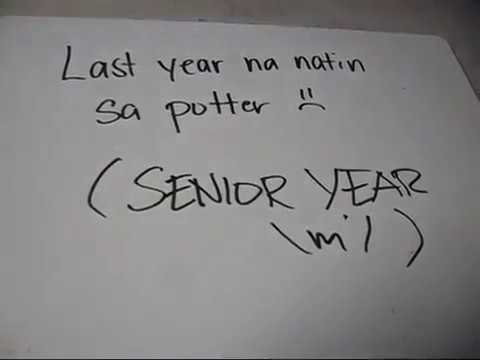 Last year na natin
sa potter :(
(SENIOR YEAR
\m/)